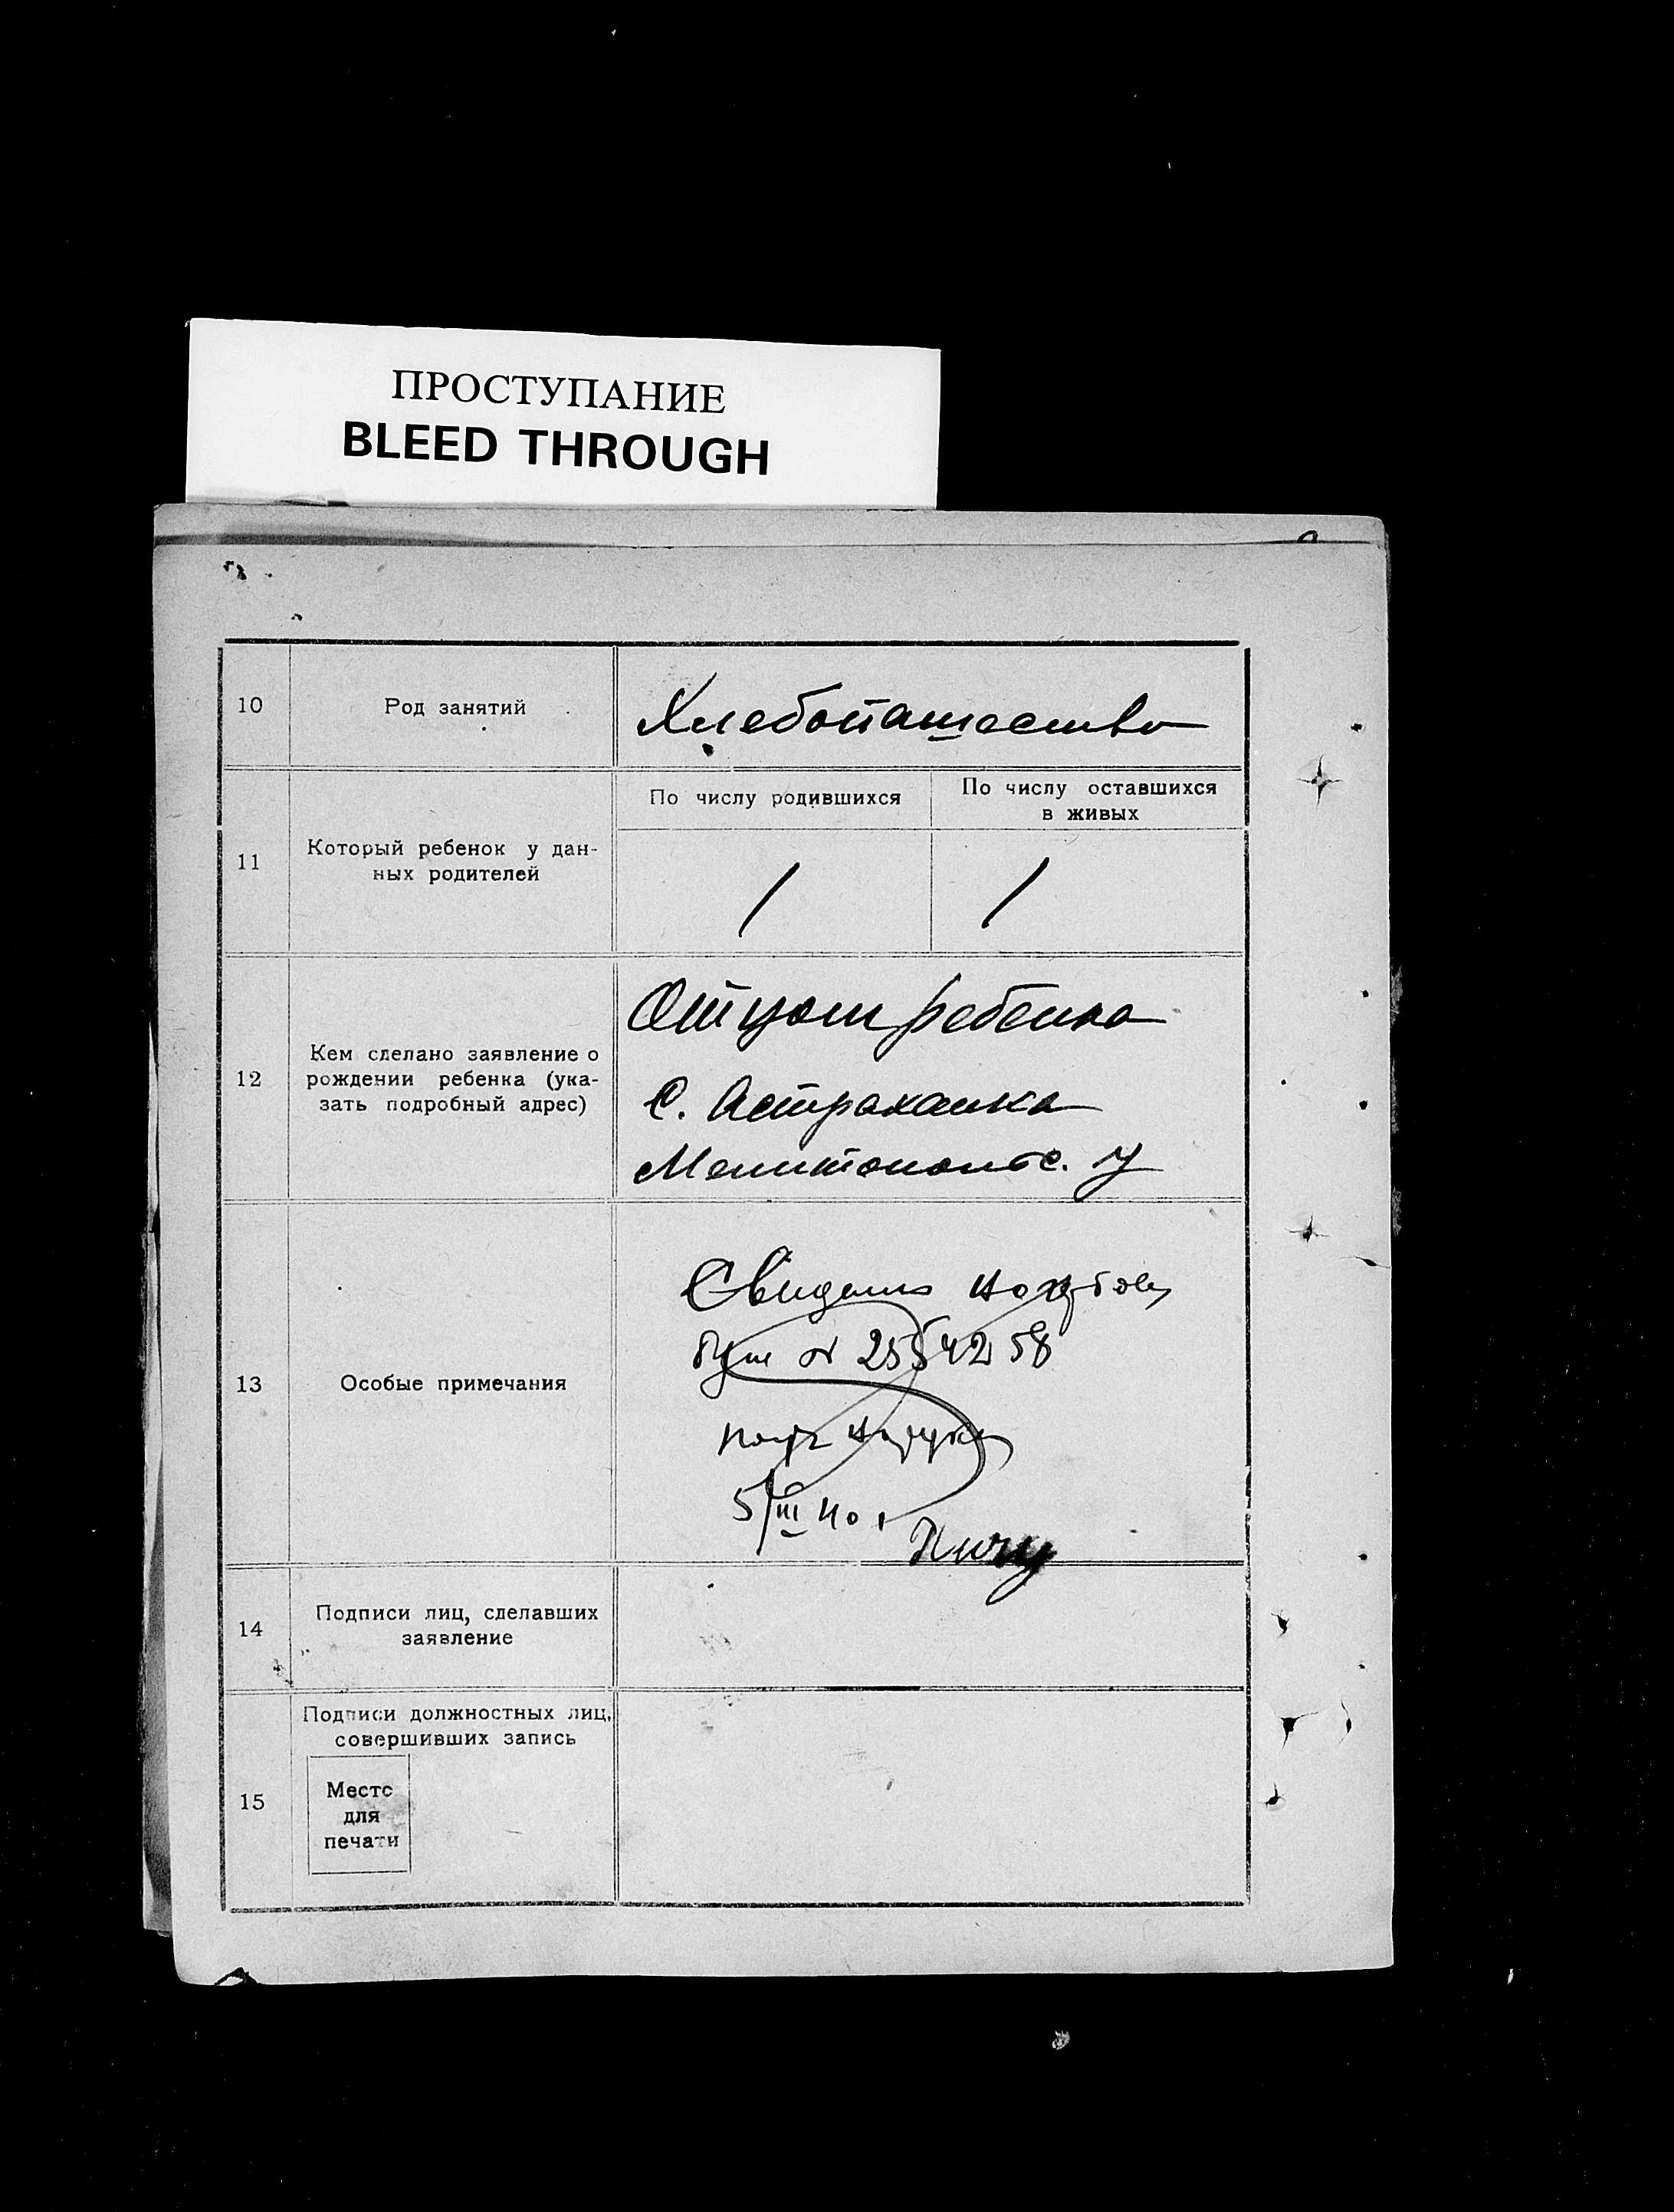 ПРОСТУПАНИЕ
BLEED THROUGH
10
Род занятий
Хлебопашество
11
Который ребенок у дан-
ных родителей
По числу родившихся
По числу оставшихся
в живых
1
1
12
Кем сделано заявление о
рождении ребенка (ука-
зать подробный адрес)
Отцом ребенка
С. Астраханка
Мелитопольс. у
13
Особые примечания
№ 2554258
5/III 40
14
Подписи лиц, сделавших
заявление
15
Подписи должностных лиц,
совершивших запись
Место
для
печати